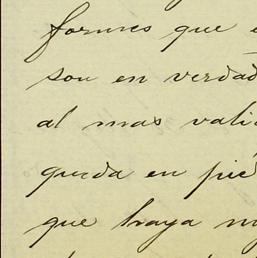 formes que
son en verdad
al mas vali
queda en pie
que haya